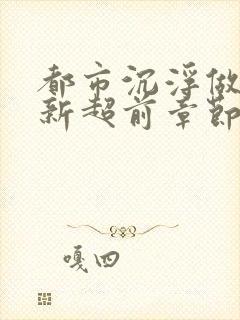 都市沉浮做
新超前章节
嘎四